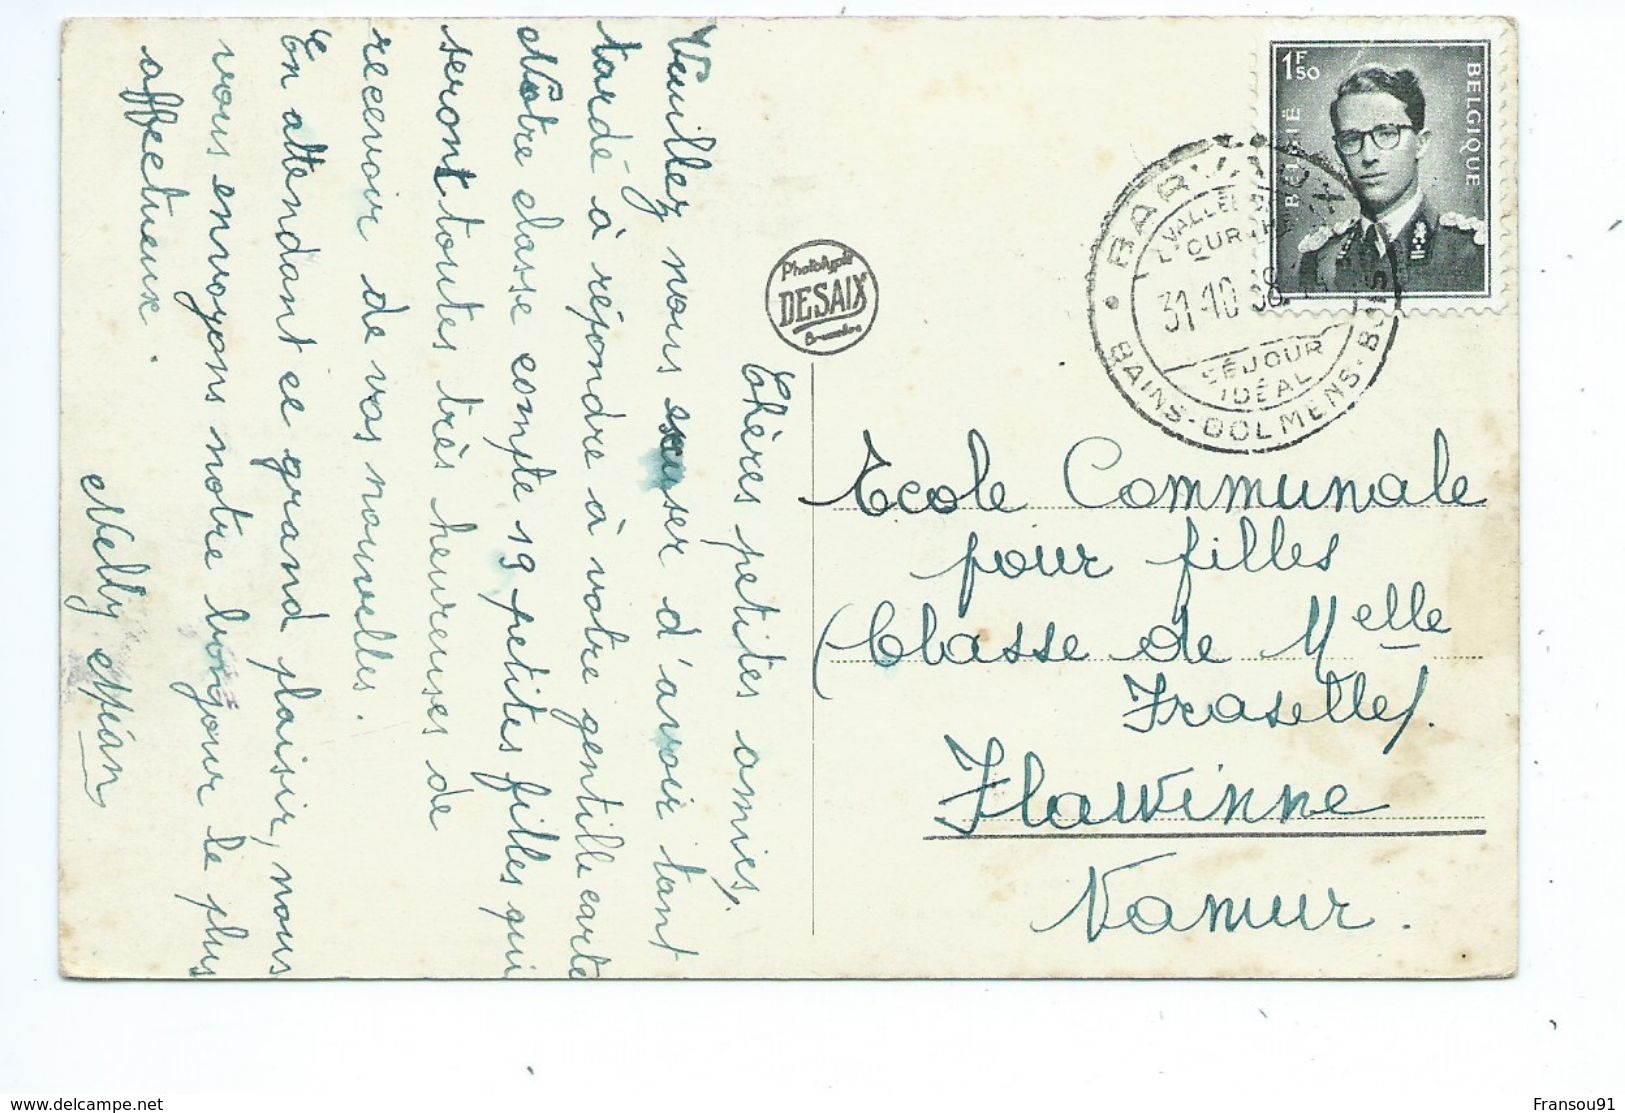 Chères petites amies,
Veuillez nous excuser d'avoir tant
tardé à répondre à votre gentille carte
Notre classe compte 19 petites filles qui
seront toutes très heureuses de
recevoir de vos nouvelles.
En attendant ce grand plaisir, nous
vous envoyons notre bonjour le plus
affectueux.
Nelly
Phototypie
DESAIX
Bruxelles
1F50
BELGIË
BELGIQUE
BARVAUX
VALLÉE
L'OURTHE
31-10
SÉJOUR
IDÉAL
BAINS-DOLMENS-BOIS
Ecole Communale
pour filles
(Classe de Melle
Fraselle).
Flawinne
Namur.
www.delcampe.net
Fransou91